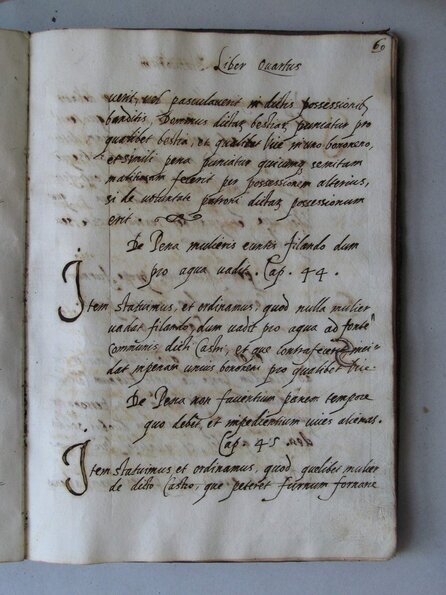 60
Liber Quartus
uerit, vel pasculaverit in dictis possessionib,
banditis. Dominus dictar, bestiar, puniatur pro
qualibet bestia, et qualibet vice in uno bononeno,
et simili pena puniatur quicumq, semitam
maliciosam fecerit per possessionem alterius,
si de voluntate patroni dictar, possessionum
erit.
De Pena mulieris euntis filando dum
pro aqua vadit. Cap. 44.
Item statuimus, et ordinamus, quod nulla mulier
vadat filando, dum vadit pro aqua ad fonte
Communis dicti Castri, et que contrafecerit, inci-
dat in penam unius bononeni pro qualibet vice.
De Pena non facientium panem tempore
quo debet, et impedientium vices alienas.
Cap. 45
Item statuimus, et ordinamus, quod, quelibet mulier
de dicto Castro, que peteret furnum fornarie